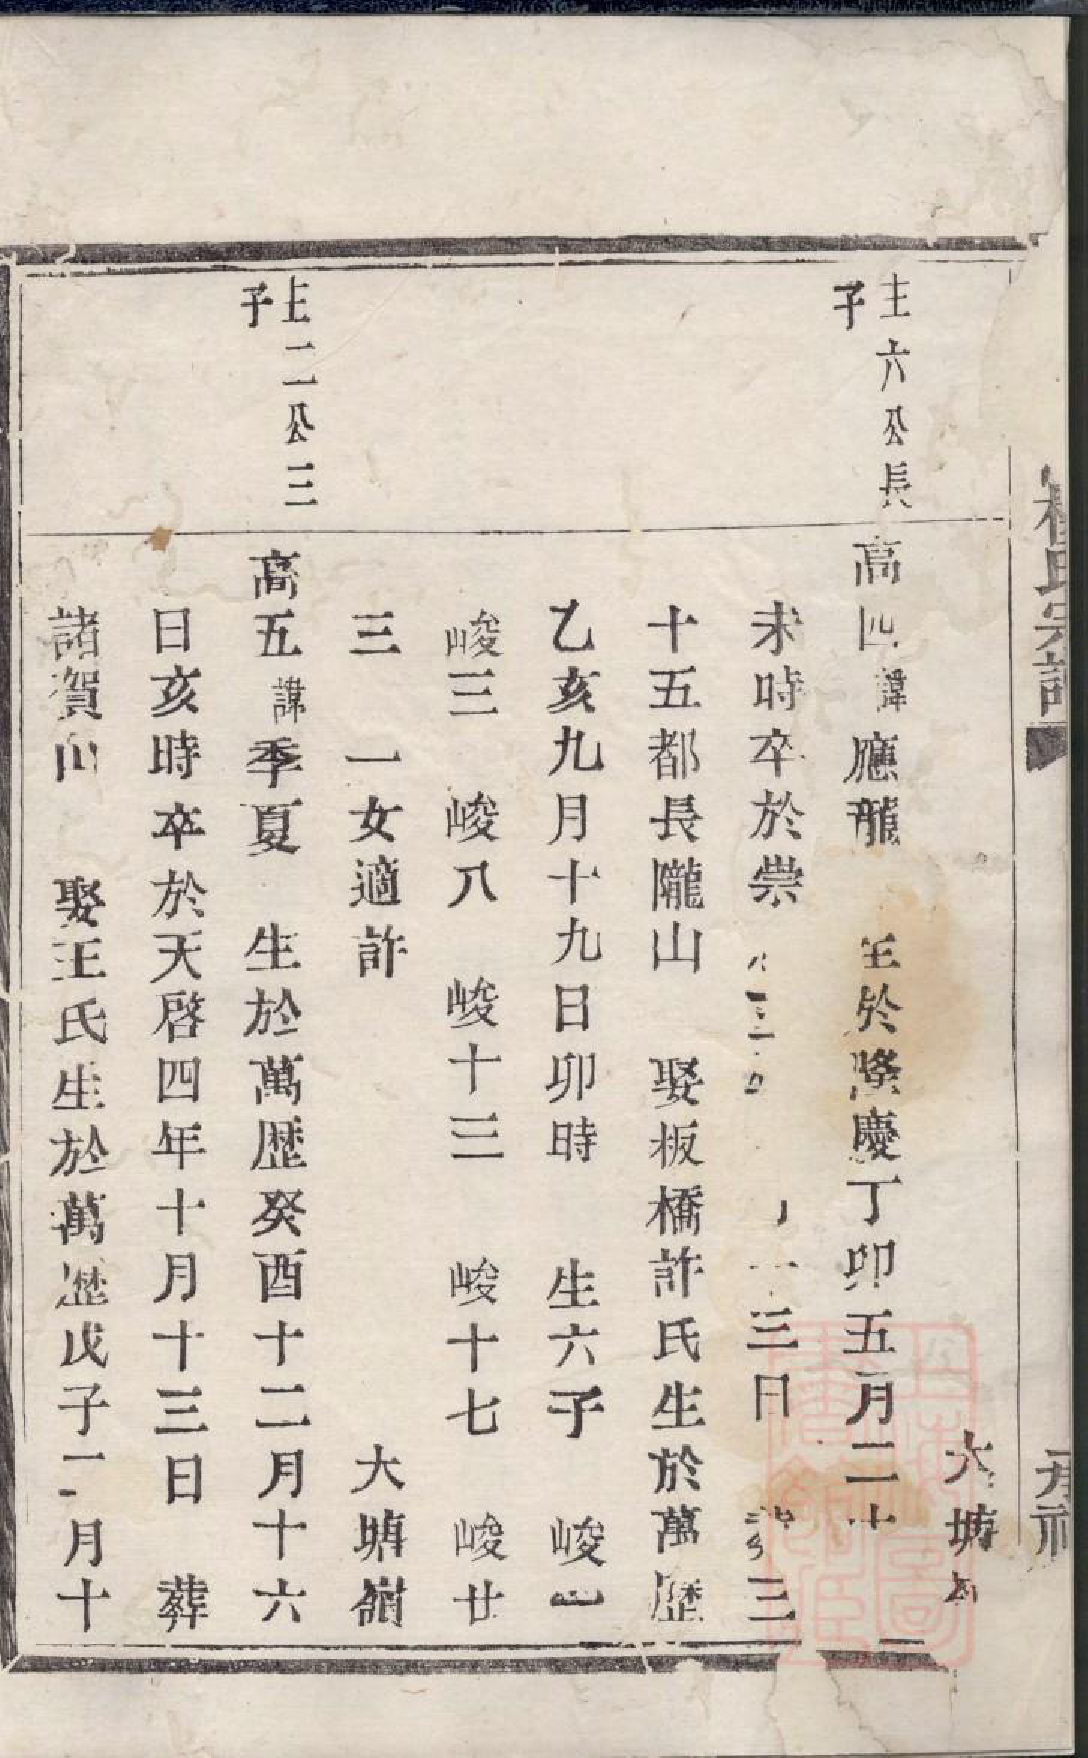 氏宗譜
大塘
主六公長
子
高四諱應龍　生於隆慶丁卯五月二十
未時卒於崇　三日　三
十五都長隴山　娶板橋許氏生於萬歷
乙亥九月十九日卯時　生六子　峻一
峻三　峻八　峻十三　峻十七　峻廿
三　一女適許　大塘嶺
主二公三
子
高五諱季夏　生於萬歷癸酉十二月十六
日亥時卒於天啓四年十月十三日　葬
諸賀山　娶王氏生於萬歷戊子二月十